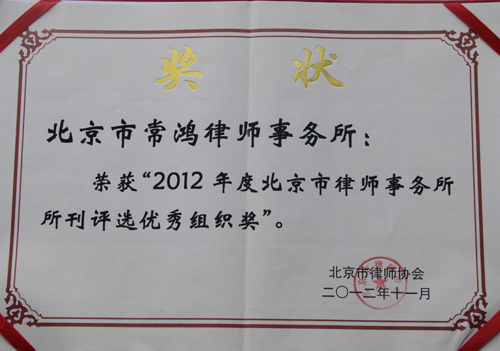 奖 状
北京市常鸿律师事务所：
荣获“2012年度北京市律师事务所
所刊评选优秀组织奖”。
北京市律师协会
二〇一二年十一月